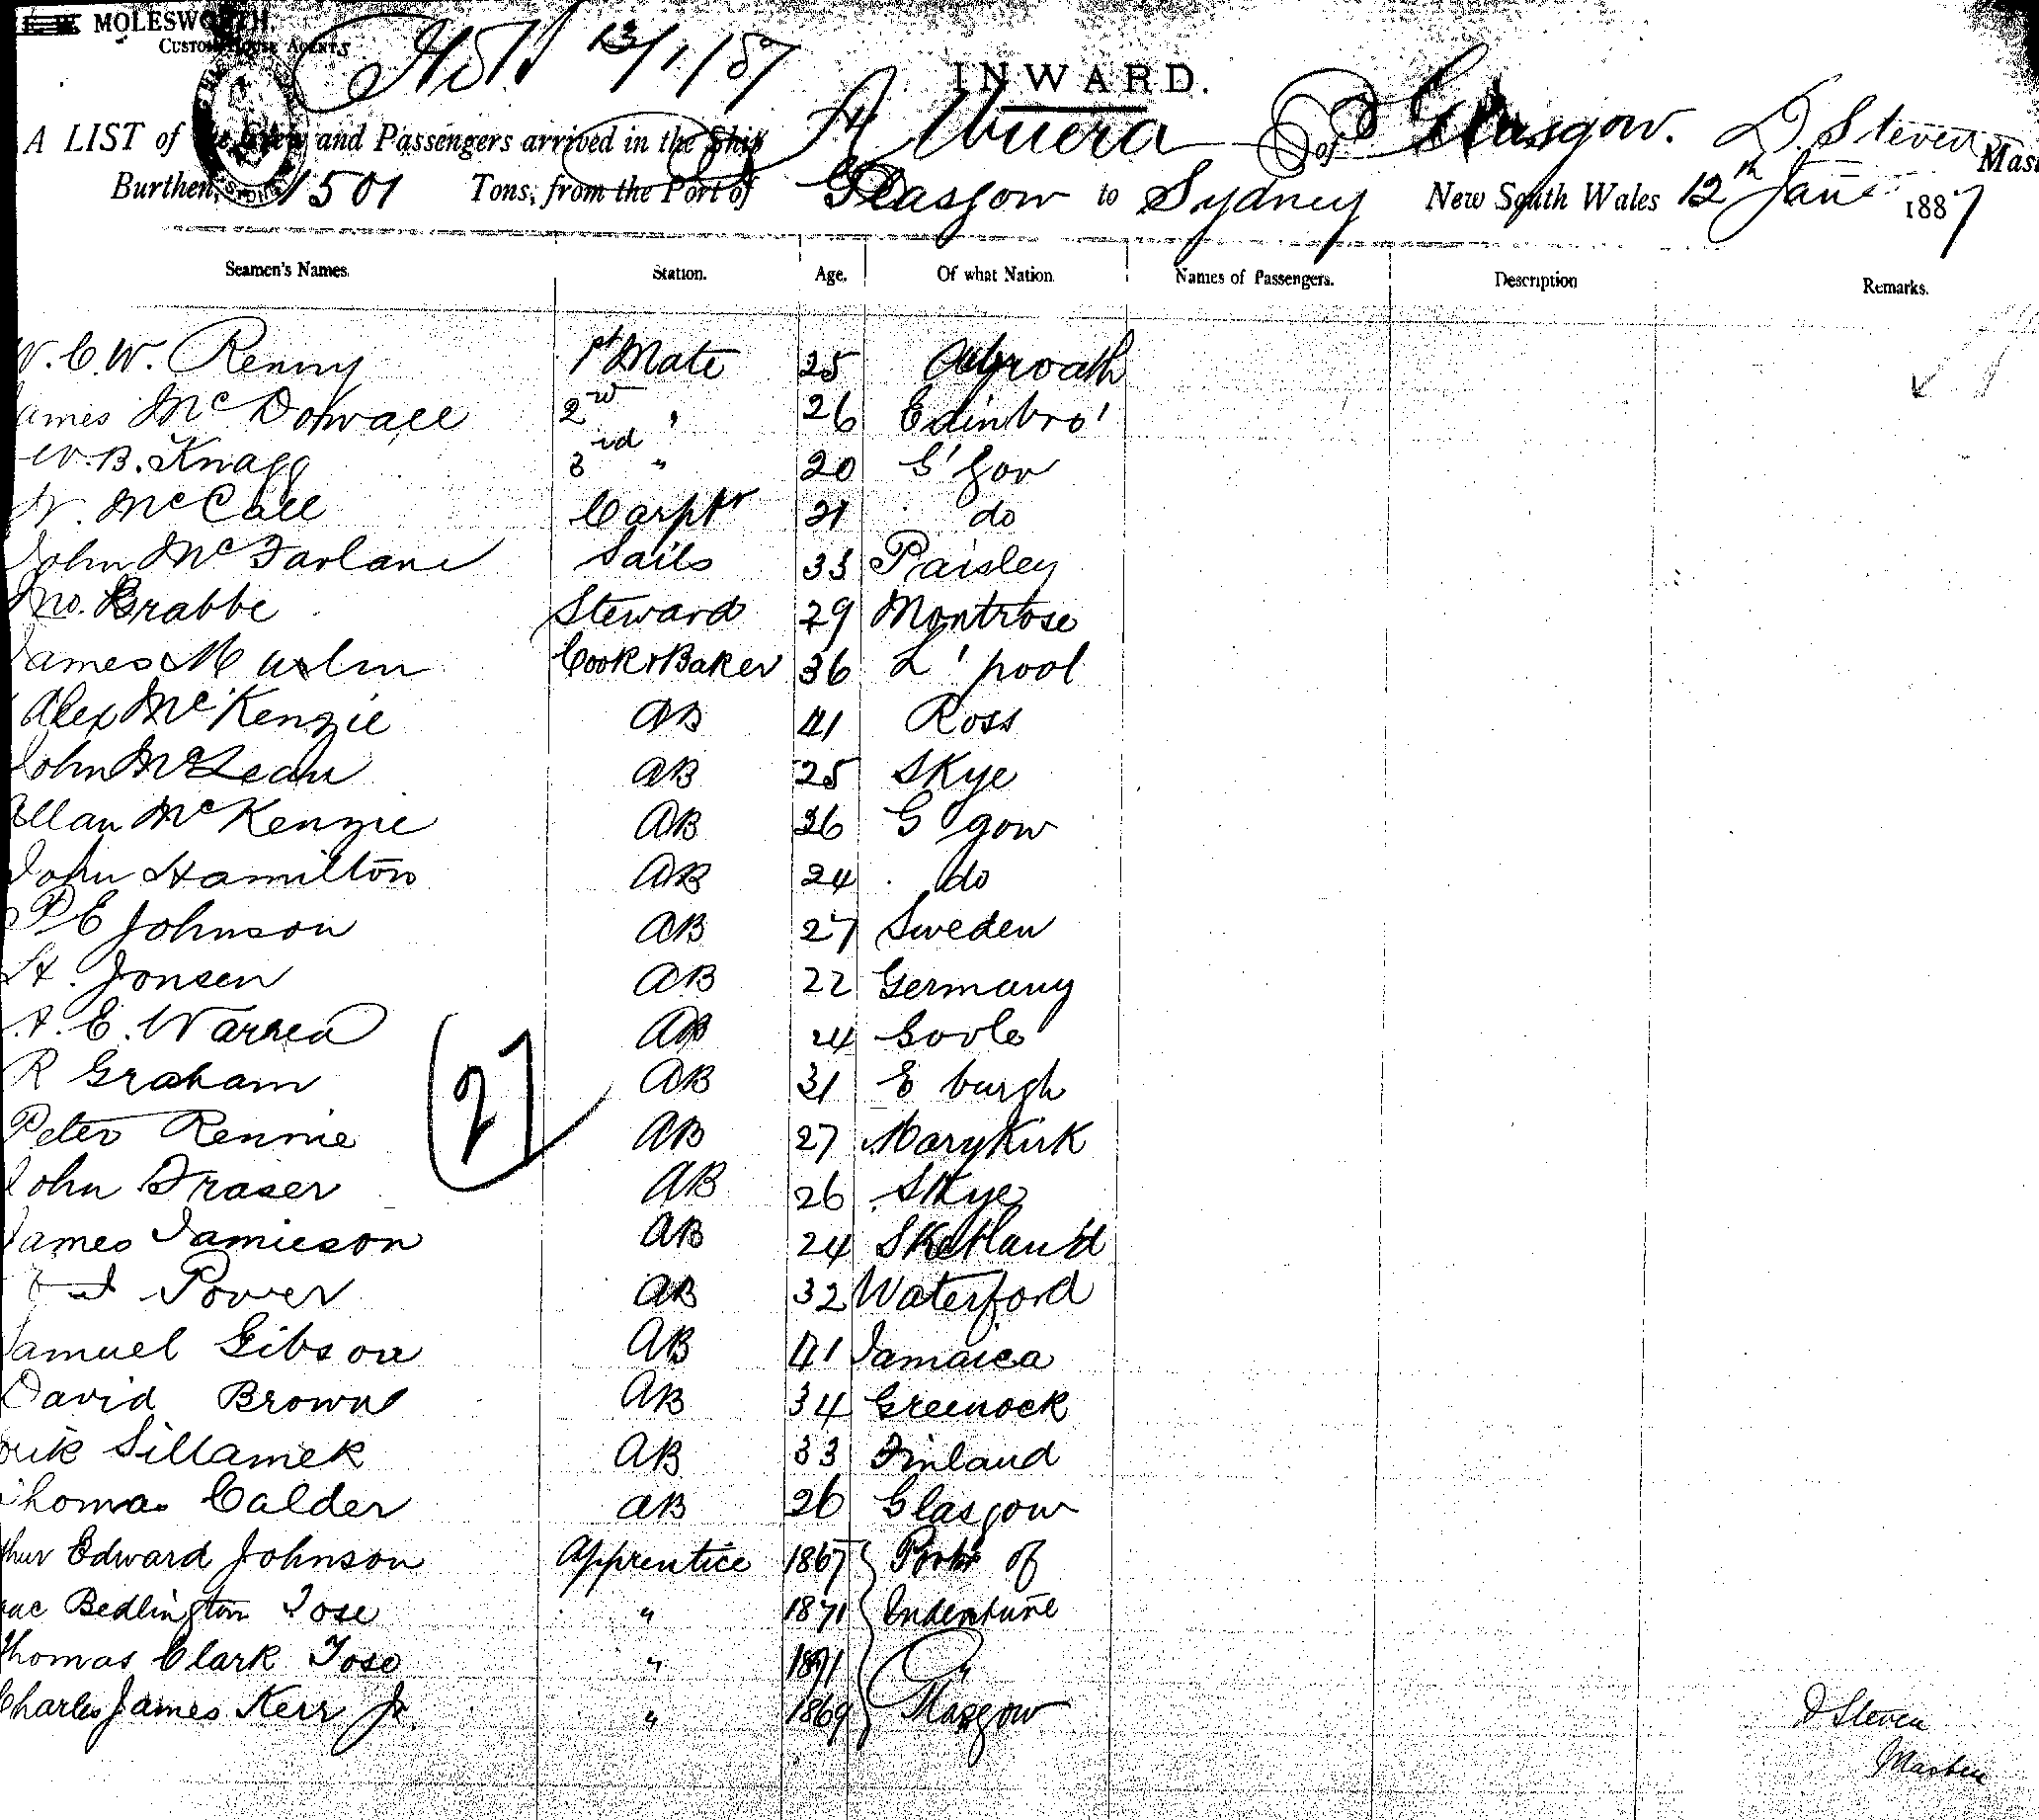 MOLESWORTH.
CUSTOM HOUSE AGENTS
13/1/87
INWARD.
A LIST of the Crew and Passengers arrived in the Ship Albuera of Glasgow. D. Steven Mast
Burthen, 1501 Tons, from the Port of Glasgow to Sydney New South Wales 12th Jany 1887
Seamen's Names. Station. Age. Of what Nation. Names of Passengers. Description Remarks.
W. C. W. Renny 1st Mate 25 Arbroath
ames McDowall 2nd " 26 Edinbro'
W. B. Knagg 3rd " 20 G'gow
McCall Carptr 21 do
John McFarlane Sails 33 Paisley
Jno. Crabbe Steward 29 Montrose
James Cook & Baker 36 L'pool
Alex McKenzie AB 41 Ross
John McLean AB 25 Skye
Allan McKenzie AB 26 G'gow
John Hamilton AB 24 do
P E Johnson AB 27 Sweden
H. Jonsen AB 22 Germany
A. E. Warren AB 24 Goole
R Graham AB 31 E burgh
Peter Rennie AB 27 Marykirk
John Fraser AB 26 Skye
James Jamieson AB 24 Shetland
Power AB 32 Waterford
Samuel Gibson AB 41 Jamaica
David Brown AB 34 Greenock
Erik Sillamek AB 33 Finland
Thomas Calder AB 26 Glasgow
thur Edward Johnson Apprentice 1867 Port of
aac Bedlington Tose " 1871 Indenture
Thomas Clark Tose " 1871 "
Charles James Kerr Jr. " 1869 Glasgow
27
D Steven
Master